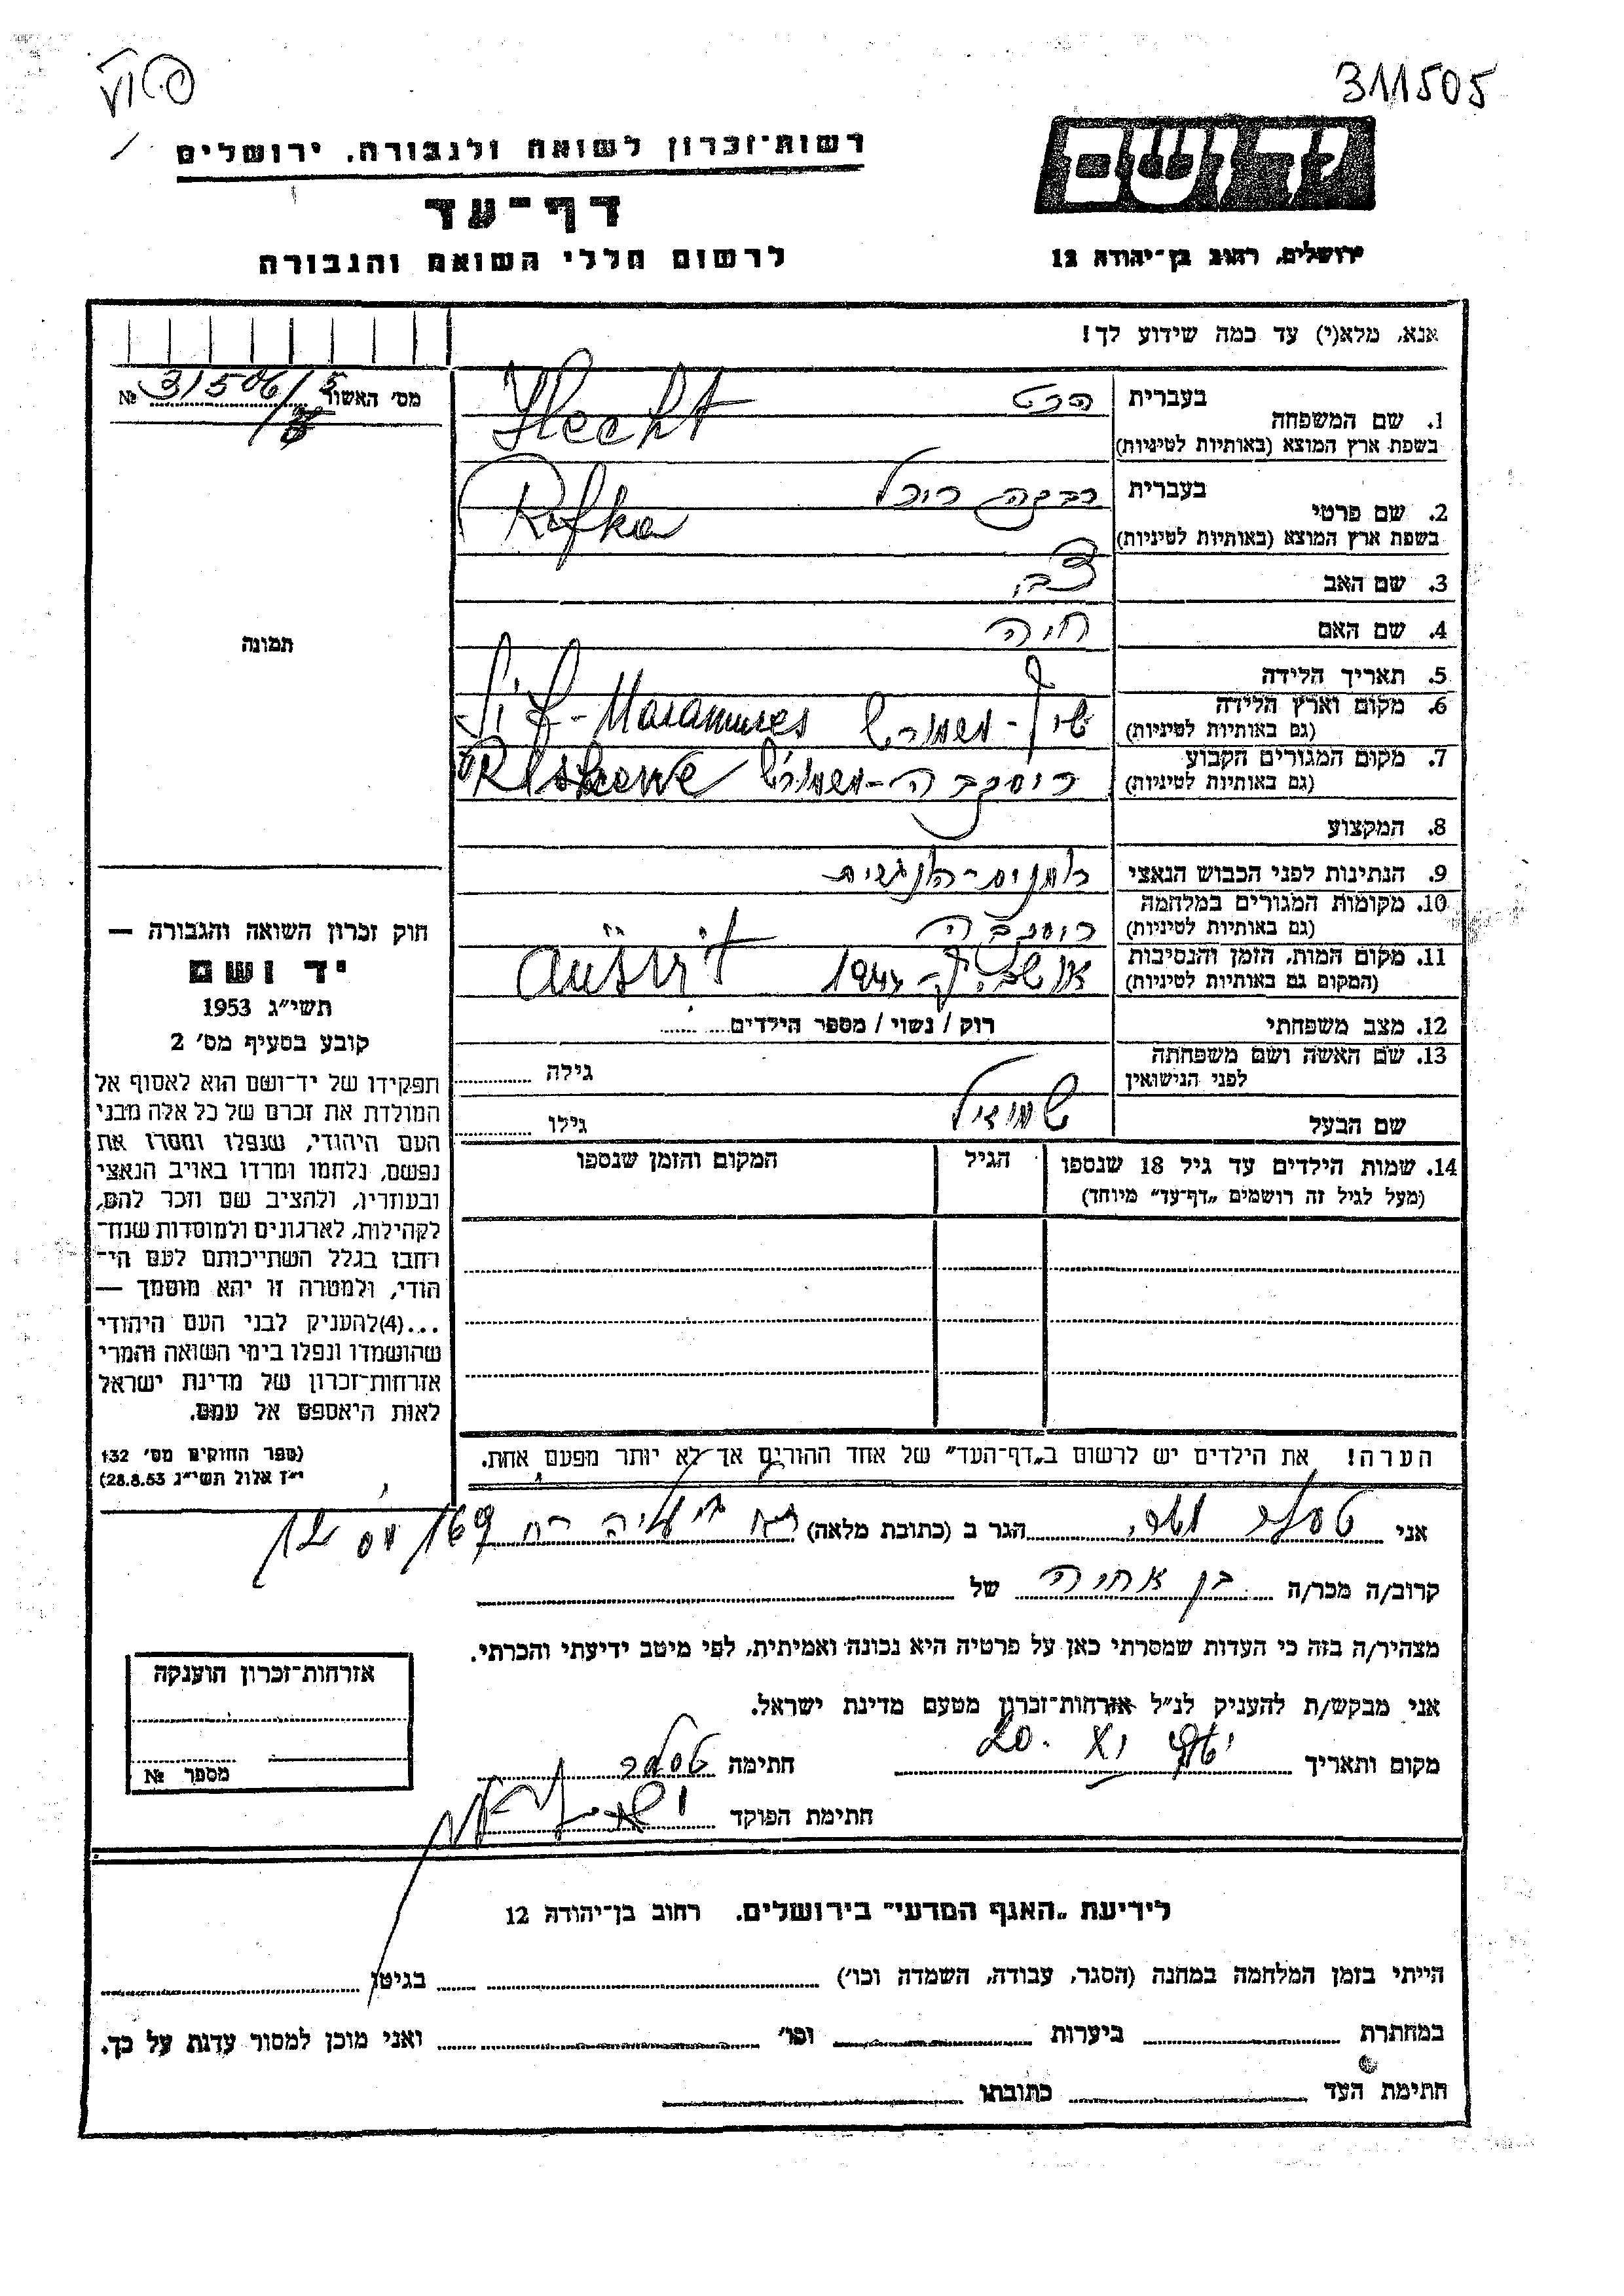 311505
רשות-זכרון לשואה ולגבורה, ירושלים
דף-עד
לרשום חללי השואה והגבורה
יד ושם
ירושלים, רחוב בן-יהודה 12
אנא, מלא(י) עד כמה שידוע לך!
מס' האשור № 31506/5
1. שם המשפחה בעברית הכט
בשפת ארץ המוצא (באותיות לטיניות) Hecht
2. שם פרטי בעברית רבקה
בשפת ארץ המוצא (באותיות לטיניות) Rifka
3. שם האב צבי
4. שם האם חיה
5. תאריך הלידה
6. מקום וארץ הלידה
(גם באותיות לטיניות) Maramures
7. מקום המגורים הקבוע
(גם באותיות לטיניות) רוסקבה-
8. המקצוע
9. הנתינות לפני הכבוש הנאצי
10. מקומות המגורים במלחמה
(גם באותיות לטיניות) רוסקבה
11. מקום המות, הזמן והנסיבות
(המקום גם באותיות לטיניות) 1944
12. מצב משפחתי רוק / נשוי / מספר הילדים
13. שם האשה ושם משפחתה
לפני הנישואין גילה
שם הבעל שמואל גילו
14. שמות הילדים עד גיל 18 שנספו הגיל המקום והזמן שנספו
(מעל לגיל זה רושמים „דף-עד" מיוחד)
תמונה
חוק זכרון השואה והגבורה —
יד ושם
תשי"ג 1953
קובע בסעיף מס' 2
תפקידו של יד-ושם הוא לאסוף אל
המולדת את זכרם של כל אלה מבני
העם היהודי, שנפלו ומסרו את
נפשם, נלחמו ומרדו באויב הנאצי
ובעוזריו, ולהציב שם וזכר להם,
לקהילות, לארגונים ולמוסדות שנח-
רחבו בגלל השתייכותם לעם הי-
הודי, ולמטרה זו יהא מוסמך —
...(4)להעניק לבני העם היהודי
שהושמדו ונפלו בימי השואה והמרי
אזרחות-זכרון של מדינת ישראל
לאות היאספם אל עמם.
(ספר החוקים מס' 132
י"ז אלול תשי"ג 28.8.53)
הערה! את הילדים יש לרשום ב„דף-העד" של אחד ההורים אך לא יותר מפעם אחת.
אני הגר ב (כתובת מלאה)
קרוב/ה מכר/ה בן אחיה של
מצהיר/ה בזה כי העדות שמסרתי כאן על פרטיה היא נכונה ואמיתית, לפי מיטב ידיעתי והכרתי.
אני מבקש/ת להעניק לנ"ל אזרחות-זכרון מטעם מדינת ישראל.
מקום ותאריך חתימה
חתימת הפוקד
אזרחות-זכרון הוענקה
מספר №
לידיעת „האגף המדעי" בירושלים. רחוב בן-יהודה 12
הייתי בזמן המלחמה במחנה (הסגר, עבודה, השמדה וכו') בגיטו
במחתרת ביערות וכו' ואני מוכן למסור עדות על כך.
חתימת העד כתובתו